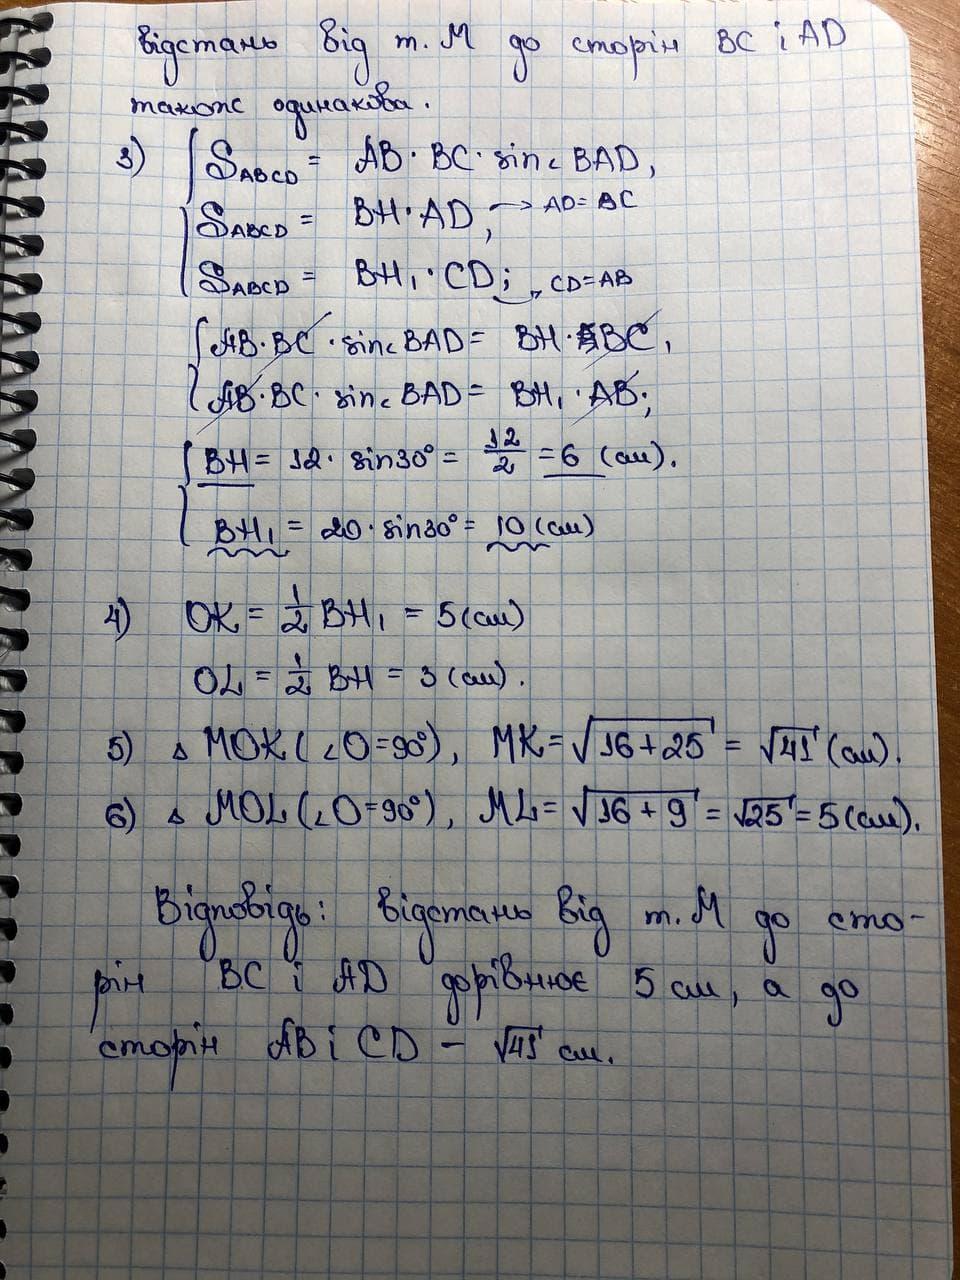 відстань від т. М до сторін BC і AD
також однакова.
3) S_ABCD = AB · BC · sin∠BAD,
S_ABCD = BH · AD, → AD = BC
S_ABCD = BH₁ · CD; → CD = AB
AB · BC · sin∠BAD = BH · BC,
AB · BC · sin∠BAD = BH₁ · AB;
BH = 12 · sin30° = 12/2 = 6 (см).
BH₁ = 20 · sin30° = 10 (см)
4) OK = 1/2 BH₁ = 5 (см)
OL = 1/2 BH = 3 (см).
5) △ MOK (∠O = 90°), MK = √(16 + 25) = √41 (см).
6) △ MOL (∠O = 90°), ML = √(16 + 9) = √25 = 5 (см).
Відповідь: відстань від т. М до сто-
рін BC і AD дорівнює 5 см, а до
сторін AB і CD – √41 см.